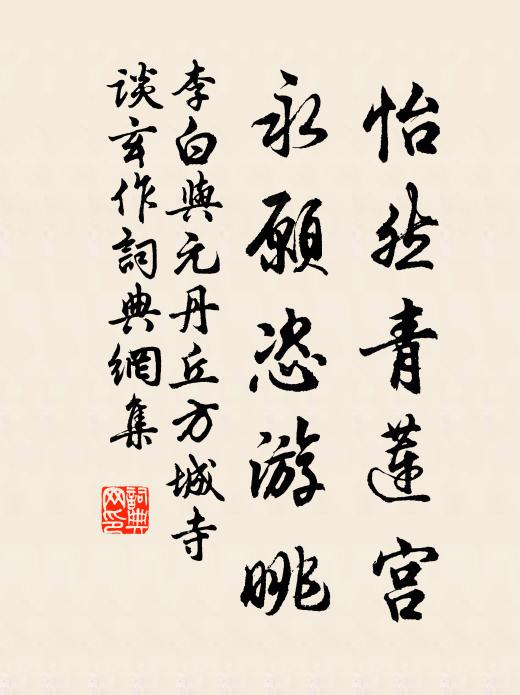 怡然青蓮宮
永願恣游眺
李白與元丹丘方城寺
談玄作詞典網集
詞典網印